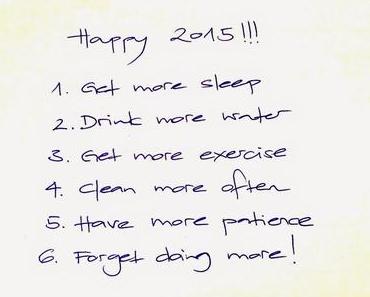 Happy 2015!!!
1. Get more sleep
2. Drink more water
3. Get more exercise
4. Clean more often
5. Have more patience
6. Forget doing more!